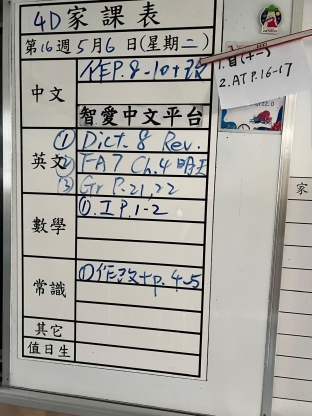 4D 家課表
第16週5月6日(星期二)
中文
作P.8-10+改
智愛中文平台
英文
① Dict. 8 Rev.
② FA7 Ch.4 明
③ Gr P.21,22
數學
①. I P.1-2
常識
①作改+p.4-5
其它
值日生
2. AT P.16-17
家